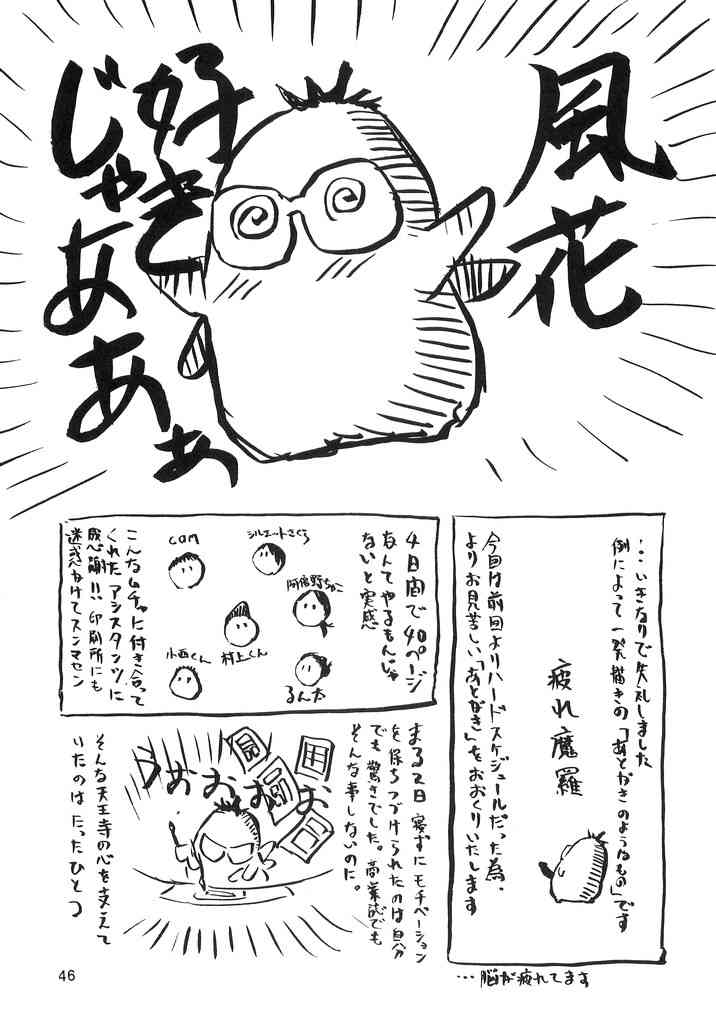 風花
好き
じゃ
あああぁ
‥いきなりで失礼しました
例によって一発描きの「あとがきのようなもの」です
疲れ魔羅
今回は前回よりハードスケジュールだった為、
よりお見苦しい「あとがき」をおおくりいたします
…脳が疲れてます
4日間で40ページ
なんてやるもんじゃ
ないと実感
シルエットさくら
com
阿倍野ちゃこ
村上くん
小西くん
るん太
こんなムチャに付き合って
くれたアシスタンツに
感謝!!印刷所にも
迷惑かけてスンマセン
まる2日寝ずにモチベーション
を保ちつづけられたのは自分
でも驚きでした。商業誌でも
そんな事しないのに。
うおおおお
そんな天王寺の心を支えて
いたのはたったひとつ
46